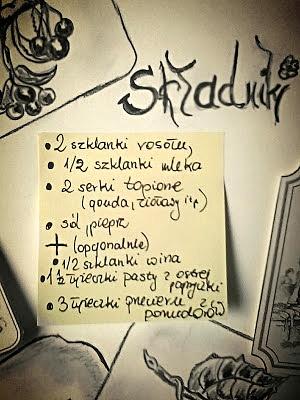 Składniki
• 2 szklanki rosołu,
• 1/2 szklanki mleka
• 2 serki topione
(gouda, ziołowy itp)
• sól, pieprz
+ (opcjonalnie)
• 1/2 szklanki wina
• 1 łyżeczki pasty z ostrej
papryki
• 3 łyżeczki przecieru z
pomidorów